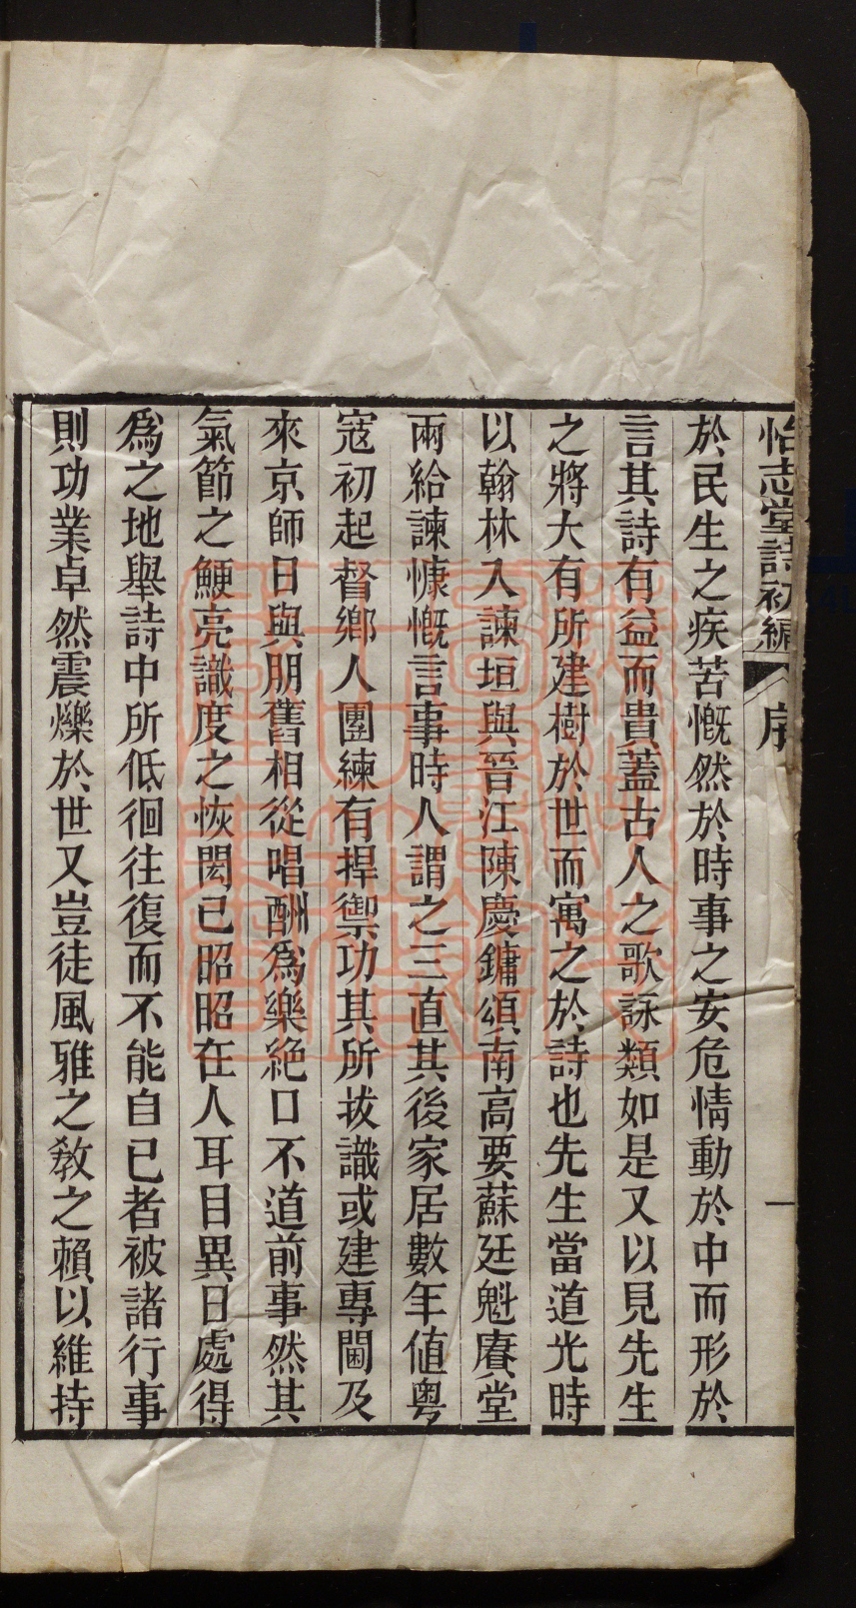 怡志堂詩初編 序 一
於民生之疾苦慨然於時事之安危情動於中而形於
言其詩有益而貴蓋古人之歌詠類如是又以見先生
之將大有所建樹於世而寓之於詩也先生當道光時
以翰林入諫垣與晉江陳慶鏞頌南高要蘇廷魁賡堂
兩給諫慷慨言事時人謂之三直其後家居數年值粵
寇初起督鄉人團練有捍禦功其所拔識或建專閫及
來京師日與朋舊相從唱酬爲樂絕口不道前事然其
氣節之鯁亮識度之恢閎已昭昭在人耳目異日處得
爲之地舉詩中所低徊往復而不能自已者被諸行事
則功業卓然震爍於世又豈徒風雅之教之賴以維持